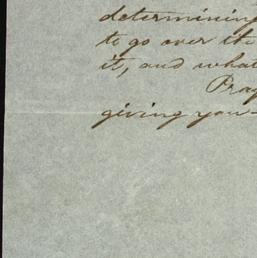 determining
to go over it
it, and what
Pray
giving you